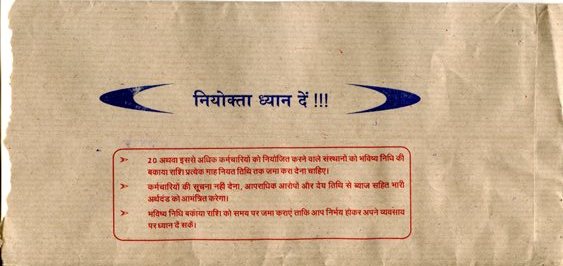 नियोक्ता ध्यान दें !!!
➢ 20 अथवा इससे अधिक कर्मचारियों को नियोजित करने वाले संस्थानों को भविष्य निधि की
बकाया राशि प्रत्येक माह नियत तिथि तक जमा करा देना चाहिए।
➢ कर्मचारियों की सूचना नहीं देना, आपराधिक आरोपो और देय तिथि से ब्याज सहित भारी
अर्थदंड को आमंत्रित करेगा।
➢ भविष्य निधि बकाया राशि को समय पर जमा कराएं ताकि आप निर्भय होकर अपने व्यवसाय
पर ध्यान दें सकें।